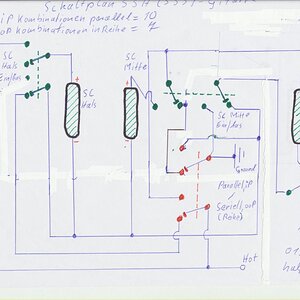 Schaltplan SSH
iP Kombinationen parallel = 10
ooP kombinationen in Reihe = 7
SC
Hals
Ein/Aus
SC
Hals
SC
Mitte
SC Mitte
Ein/Aus
Ground
Parallel iP
Seriell ooP
(Reihe)
Hot